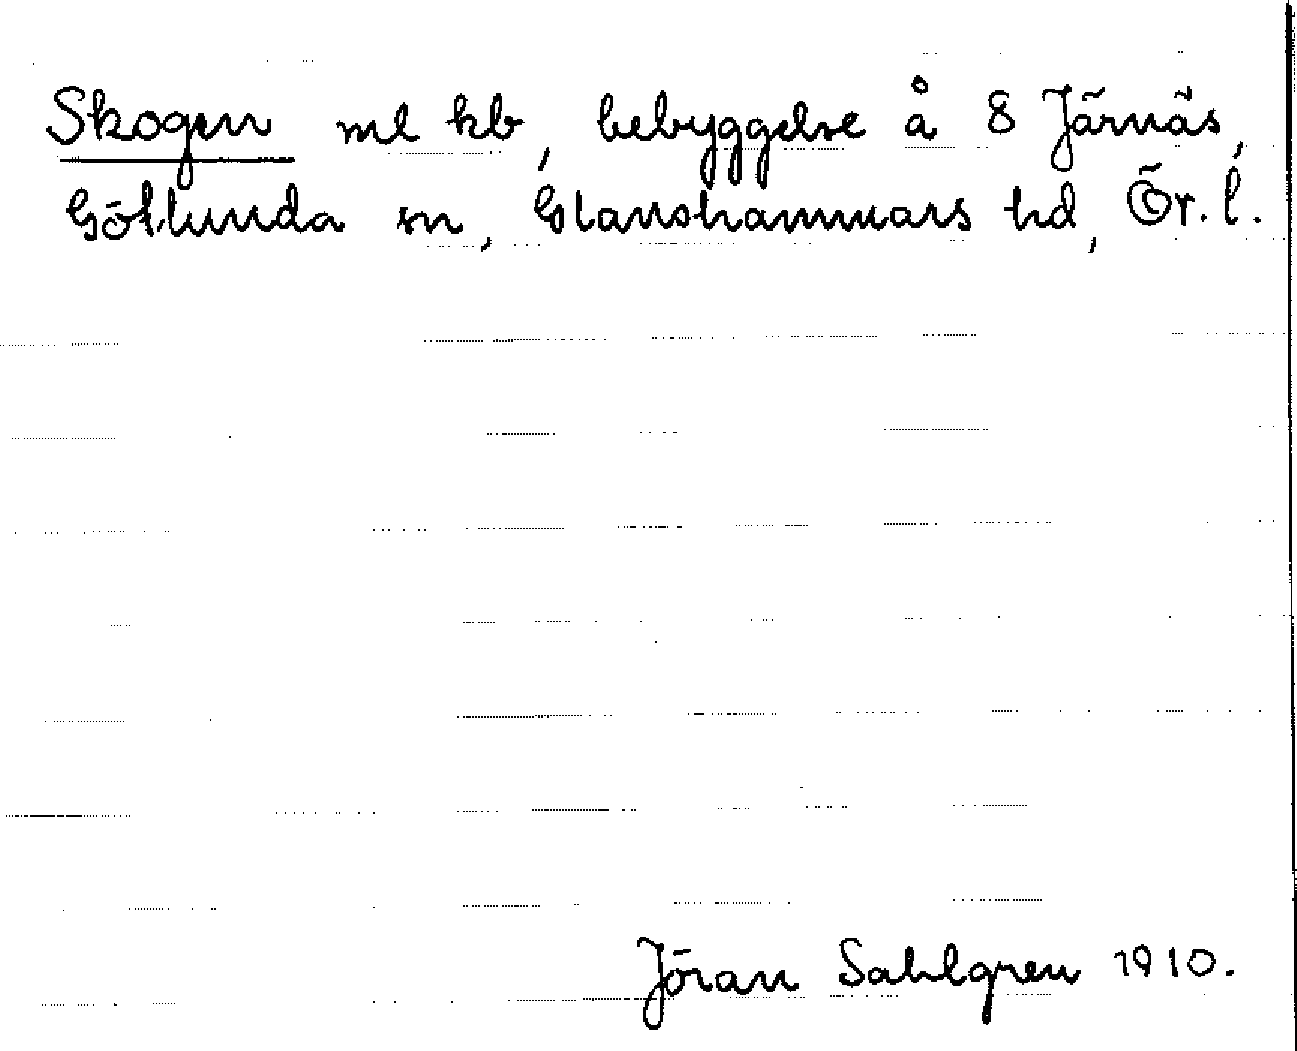 Skogen ml kb, bebyggelse å 8 Järnäs,
Götlunda sn, Glanshammars hd, Ör. l.
Jöran Sahlgren 1910.